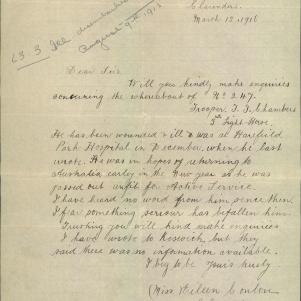 Clarendon.
March 12. 1916
August 9th 1915
Dear Sir.
Will you kindly make enquiries
concerning the whereabout of No 247.
Trooper T. J. Chambers
3rd Light Horse.
He has been wounded & ill & was at Harefield
Park Hospital in December when he last
wrote. He was in hopes of returning to
Australia early in the New year as he was
passed out unfit for Active Service.
I have heard no word from him since then
I fear something serious has befallen him.
Trusting you will kind make enquiries
I have wrote to Keswick but they
said there was no information available.
I beg to be yours truly
(Miss) Eileen